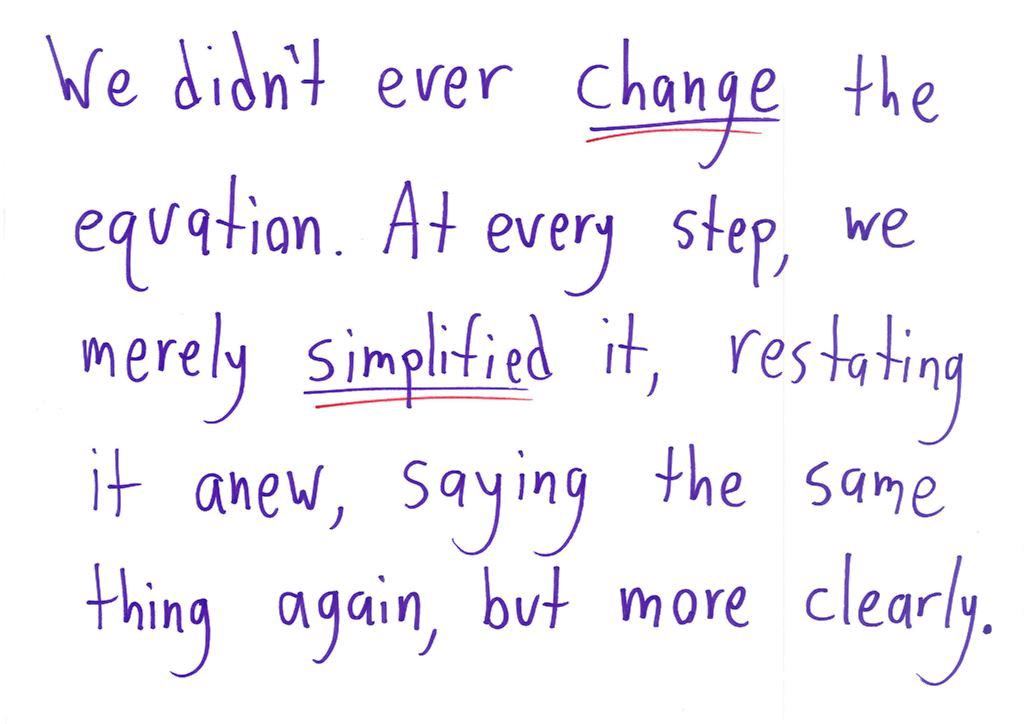 We didn't ever change the
equation. At every step, we
merely simplified it, restating
it anew, saying the same
thing again, but more clearly.